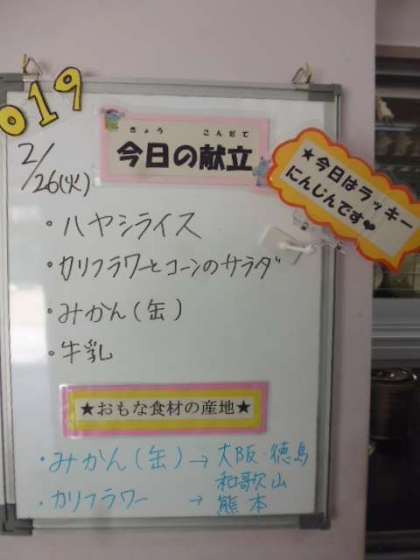 019
2/26(火)
きょう こんだて
今日の献立
★今日はラッキー
にんじんです♥
・ハヤシライス
・カリフラワーとコーンのサラダ
・みかん(缶)
・牛乳
★おもな食材の産地★
・みかん(缶)→大阪・徳島
和歌山
・カリフラワー → 熊本